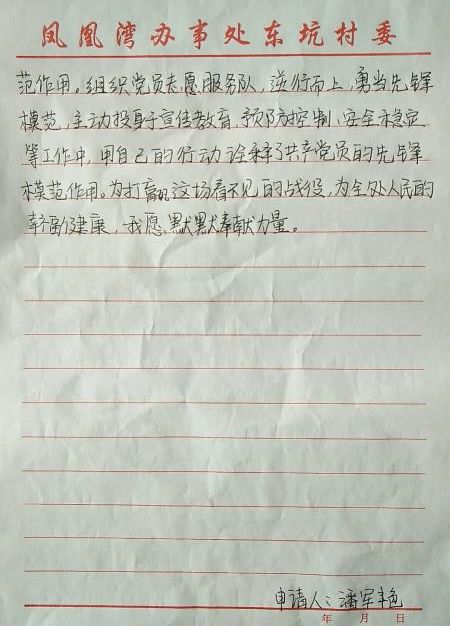 凤凰湾办事处东坑村委
范作用。组织党员志愿服务队,逆行而上,勇当先锋
模范,主动投身于宣传教育、预防控制、安全稳定
等工作中,用自己的行动诠释了共产党员的先锋
模范作用。为打赢这场看不见的战役,为全处人民的
幸福健康,我愿默默奉献力量。
申请人:潘军艳
年 月 日